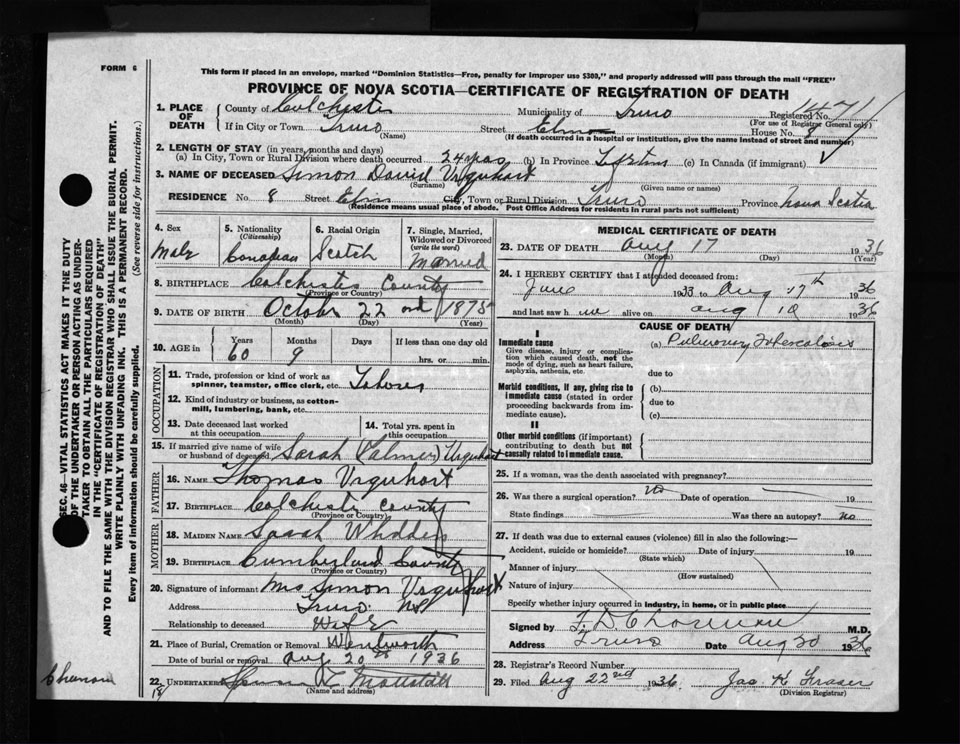 FORM 6
This form if placed in an envelope, marked "Dominion Statistics—Free, penalty for improper use $300," and properly addressed will pass through the mail "FREE"
PROVINCE OF NOVA SCOTIA—CERTIFICATE OF REGISTRATION OF DEATH
1. PLACE OF DEATH
County of Colchester Municipality of Truro Registered No. 1471
(For use of Registrar General only)
If in City or Town Truro Street Elm House No. 8
(Name) (If death occurred in a hospital or institution, give the name instead of street and number)
2. LENGTH OF STAY (in years, months and days)
(a) In City, Town or Rural Division where death occurred 24 yrs (b) In Province Lifetime (c) In Canada (if immigrant)
3. NAME OF DECEASED Simon David Urquhart
(Surname) (Given name or names)
RESIDENCE No. 8 Street Elm City, Town or Rural Division Truro Province Nova Scotia
(Residence means usual place of abode. Post Office Address for residents in rural parts not sufficient)
4. Sex Male
5. Nationality (Citizenship) Canadian
6. Racial Origin Scotch
7. Single, Married, Widowed or Divorced (write the word) Married
8. BIRTHPLACE Colchester County
(Province or Country)
9. DATE OF BIRTH October 22nd 1875
(Month) (Day) (Year)
10. AGE in Years 60 Months 9 Days If less than one day old hrs. or min.
OCCUPATION
11. Trade, profession or kind of work as spinner, teamster, office clerk, etc. Laborer
12. Kind of industry or business, as cotton-mill, lumbering, bank, etc.
13. Date deceased last worked at this occupation
14. Total yrs. spent in this occupation
15. If married give name of wife or husband of deceased Sarah (Palmer) Urquhart
FATHER
16. NAME Thomas Urquhart
17. BIRTHPLACE Colchester County
(Province or Country)
MOTHER
18. MAIDEN NAME Sarah
19. BIRTHPLACE Cumberland County
(Province or Country)
20. Signature of informant Mrs Simon Urquhart
Address Truro NS
Relationship to deceased Wife
21. Place of Burial, Cremation or Removal Wentworth
Date of burial or removal Aug 20th 1936
22. UNDERTAKER
(Name and address)
MEDICAL CERTIFICATE OF DEATH
23. DATE OF DEATH Aug 17 1936
(Month) (Day) (Year)
24. I HEREBY CERTIFY that I attended deceased from:
June 1933 to Aug 17th 1936
and last saw h alive on Aug 10 1936
CAUSE OF DEATH
I
Immediate cause
Give disease, injury or complication which caused death, not the mode of dying, such as heart failure, asphyxia, asthenia, etc.
(a) Pulmonary Tuberculosis
due to
Morbid conditions, if any, giving rise to immediate cause (stated in order proceeding backwards from immediate cause).
(b)
due to
(c)
II
Other morbid conditions (if important) contributing to death but not causally related to immediate cause.
25. If a woman, was the death associated with pregnancy?
26. Was there a surgical operation? No Date of operation 19
State findings Was there an autopsy? no
27. If death was due to external causes (violence) fill in also the following:—
Accident, suicide or homicide? Date of injury 19
(State which)
Manner of injury
(How sustained)
Nature of injury
Specify whether injury occurred in industry, in home, or in public place
Signed by M.D.
Address Truro Date Aug 20 1936
28. Registrar's Record Number
29. Filed Aug 22nd 1936 Jas. K Fraser
(Division Registrar)
SEC. 46—VITAL STATISTICS ACT MAKES IT THE DUTY
OF THE UNDERTAKER OR PERSON ACTING AS UNDERTAKER TO OBTAIN ALL THE PARTICULARS REQUIRED
IN THE "CERTIFICATE OF REGISTRATION OF DEATH"
AND TO FILE THE SAME WITH THE DIVISION REGISTRAR WHO SHALL ISSUE THE BURIAL PERMIT.
WRITE PLAINLY WITH UNFADING INK. THIS IS A PERMANENT RECORD.
Every item of information should be carefully supplied. (See reverse side for instructions.)